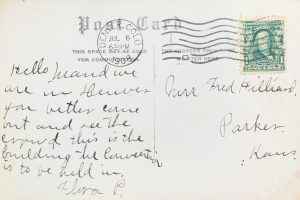 Post Card
THIS SPACE MAY BE USED
FOR CORRESPONDENCE
THE ADDRESS ONLY
WRITTEN HERE
DENVER, COLO.
JUL 6
630 PM
1908
Hello Maud we
are in Denver
you better come
out and see the
crowd this is the
building the convention
is to be held in.
Flora P.
Mrs Fred Hilliard
Parker
Kans.